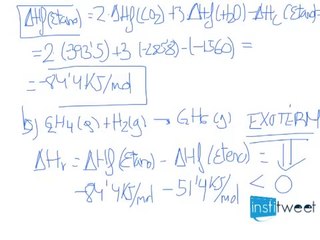 ΔHf(Etano) = 2·ΔHf(CO2) + 3ΔHf(H2O) - ΔHc(Etano) =
= 2(393'5) + 3(-285'8) - (-1560) =
= -84'4 KJ/mol
b) C2H4(g) + H2(g) → C2H6(g) EXOTERM
ΔHr = ΔHf(Etano) - ΔHf(Eteno) =
-84'4 KJ/mol - 51'4 KJ/mol < 0
institweet